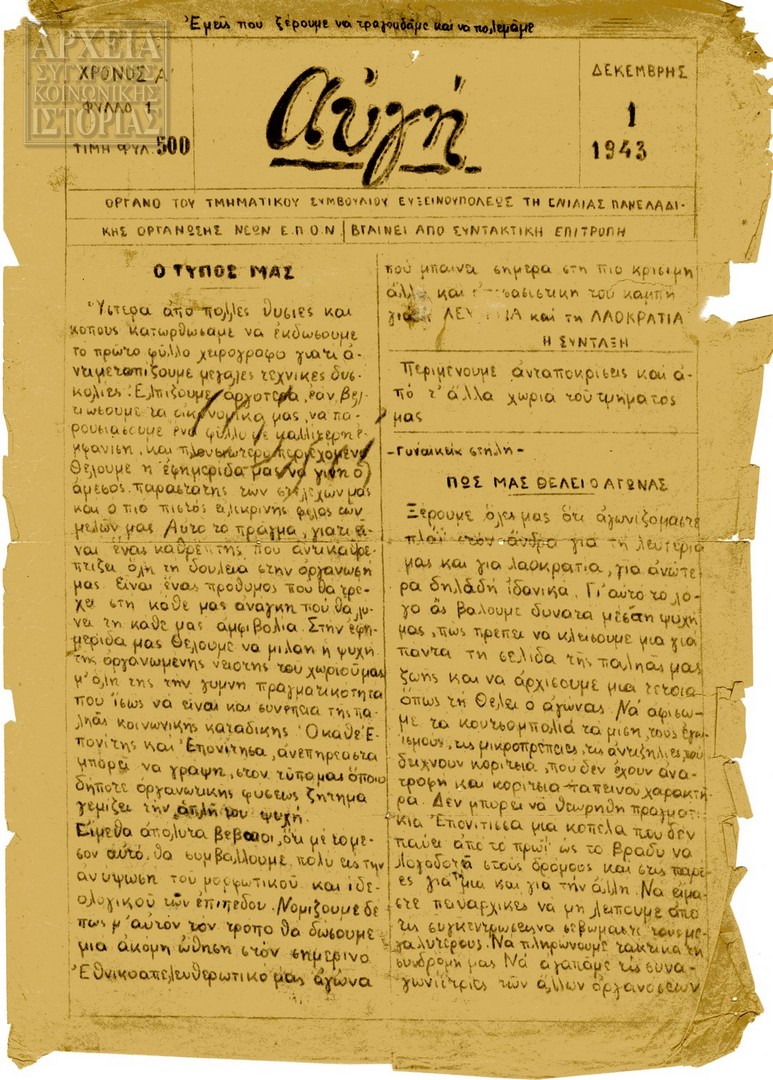 Ἐμεῖς που ξέρουμε να τραγουδᾶμε και να πολεμᾶμε
ΑΡΧΕΙΑ
ΣΥΓΧΡΟΝΗΣ
ΚΟΙΝΩΝΙΚΗΣ
ΙΣΤΟΡΙΑΣ
ΧΡΟΝΟΣ Α'
ΦΥΛΛΟ 1
ΤΙΜΗ ΦΥΛ. 500
Αὐγή
ΔΕΚΕΜΒΡΗΣ
1
1943
ΟΡΓΑΝΟ ΤΟΥ ΤΜΗΜΑΤΙΚΟΥ ΣΥΜΒΟΥΛΙΟΥ ΕΥΞΕΙΝΟΥΠΟΛΕΩΣ ΤΗ ΕΝΙΑΙΑΣ ΠΑΝΕΛΑΔΙ-
ΚΗΣ ΟΡΓΑΝΩΣΗΣ ΝΕΩΝ Ε.Π.Ο.Ν | ΒΓΑΙΝΕΙ ΑΠΟ ΣΥΝΤΑΚΤΙΚΗ ΕΠΙΤΡΟΠΗ
Ο ΤΥΠΟΣ ΜΑΣ
Ὕστερα ἀπο πολλες θυσιες και
κοπους κατωρθωσαμε να ἐκδωσουμε
το πρώτο φύλλο χειρογραφο γιατι ἀ-
ντιμετωπιζουμε μεγαλες τεχνικες δυσ-
κολιες. Ἐλπιζουμε ἀργοτερα, ἐαν βελ-
τιωσουμε τα οικονομικα μας, να πα-
ρουσιασουμε ενα φυλλο με καλλιτερη ἐ-
μφανιση, και πλουσιωτερο περιεχομενο
Θελουμε η ἐφημεριδα μας να γινη ο
ἀμεσος παραστατης των στελεχων μας
και ο πιο πιστος ειλικρινης φιλος των
μελών μας. Αυτο το πραγμα, γιατι εἰ-
ναι ἑνας καθρεπτης που αντικαθρε-
πτιζει όλη τη δουλεια στην οργανωση
μας. Ειναι ἑνας προθυμος που θα τρε-
χει στη καθε μας αναγκη που θα λυ-
νει τη κάθε μας αμφιβολια. Στην εφη-
μεριδα μας θελουμε να μιλαη η ψυχη
της οργανωμενης νειοτης του χωριου μας
μ' ὅλη της την γυμνη πραγματικοτητα
που ἴσως να είναι και συνεπεια της πα-
ληας κοινωνικης καταδικης. Ο καθε Ε-
πονίτης και Ἐπονίτησα, ανεπηρεαστα
μπορεῖ να γραψη, στον τύπο μας ὁποιο
δηποτε οργανωτικης φυσεως ζητημα
γεμιζει την απλη του ψυχή.
Είμεθα απολυτα βεβαιοι, ὅτι με το με-
σον αυτό, θα συμβαλλουμε πολυ εις την
ανυψωση του μορφωτικού και ιδε-
ολογικού των επιπεδου. Νομιζουμε δε
πως μ' αυτον τον τροπο θα δωσουμε
μια ακομη ωθηση στον σημερινο
Ἐθνικοαπελευθερωτικο μας ἀγώνα
που μπαινει σημερα στη πιο κρισιμη
ἀλλα και αποφασιστικη του καμπη
για τη ΛΕΥΤΕΡΙΑ και τη ΛΑΟΚΡΑΤΙΑ
Η ΣΥΝΤΑΞΗ
Περιμενουμε ἀνταποκρισεις και ἀ-
πό τ' ἄλλα χωρια του τμηματος
μας
-Γυναικεία στηλη-
ΠΩΣ ΜΑΣ ΘΕΛΕΙ Ο ΑΓΩΝΑΣ
Ξέρουμε όλες μας ότι ἀγωνιζομαστε
πλάϊ στον ἄνδρα για τη λευτερια
μας και για λαοκρατια, για ἀνώτε-
ρα δηλαδή ἰδανικά. Γι' αὐτο το λο-
γο ἄς βαλουμε δυνατα μεσ τη ψυχη
μας, πως πρεπει να κλεισουμε μια για
παντα τη σελιδα της παληᾶς μας
ζωης και να άρχισουμε μια τετοια
ὅπως τη θελει ο αγωνας. Νά ἀφισω-
με τα κουτσομπολιά τα μιση, τους ἐγω-
ϊσμους, τις μικροπρεπειες, τις αντιζηλιες, που
δειχνουν κοριτσια, που δεν έχουν ἀνα-
τροφη και κοριτσια ταπεινου χαρακτή-
ρα. Δεν μπορει νά θεωρηθη πραγματι-
κια Ἐπονιτισσα μια κοπελα που δεν
παυει από το πρωϊ ως το βραδυ να
λογοδοτᾶ στους δρομους και στις παρε-
ες για μια και για την άλλη. Νά είμα-
στε πειθαρχικες να μη λειπουμε απο
τις συγκεντρωσεις να σεβωμαστε τους με-
γαλυτερους. Νά πληρωνουμε τακτικα τη
συνδρομη μας. Νά αγαπαμε τις συνα-
γωνιστριες τῶν άλλων οργανωσεων